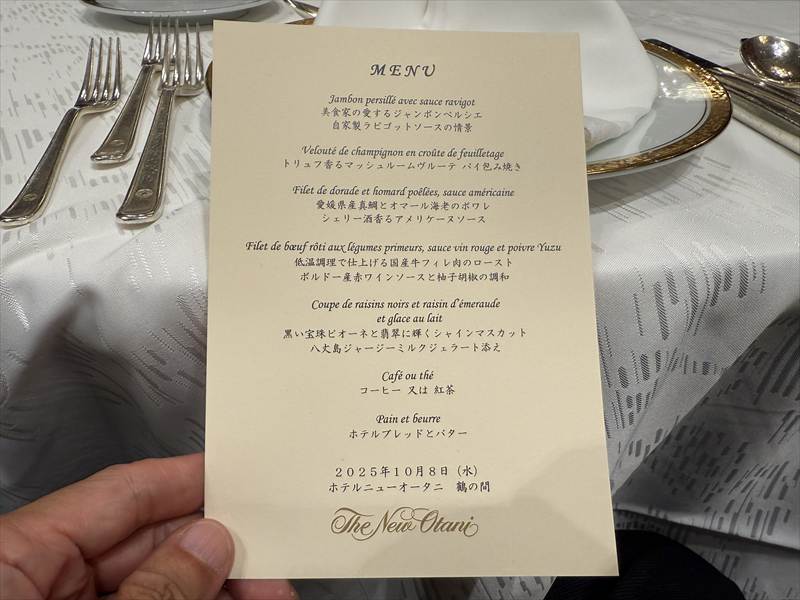 MENU
Jambon persillé avec sauce ravigot
美食家の愛するジャンボンペルシエ
自家製ラビゴットソースの情景
Velouté de champignon en croûte de feuilletage
トリュフ香るマッシュルームヴルーテ パイ包み焼き
Filet de dorade et homard poêlées, sauce américaine
愛媛県産真鯛とオマール海老のポワレ
シェリー酒香るアメリケーヌソース
Filet de bœuf rôti aux légumes primeurs, sauce vin rouge et poivre Yuzu
低温調理で仕上げる国産牛フィレ肉のロースト
ボルドー産赤ワインソースと柚子胡椒の調和
Coupe de raisins noirs et raisin d'émeraude
et glace au lait
黒い宝珠ピオーネと翡翠に輝くシャインマスカット
八丈島ジャージーミルクジェラート添え
Café ou thé
コーヒー 又は 紅茶
Pain et beurre
ホテルブレッドとバター
2025年10月8日(水)
ホテルニューオータニ 鶴の間
The New Otani